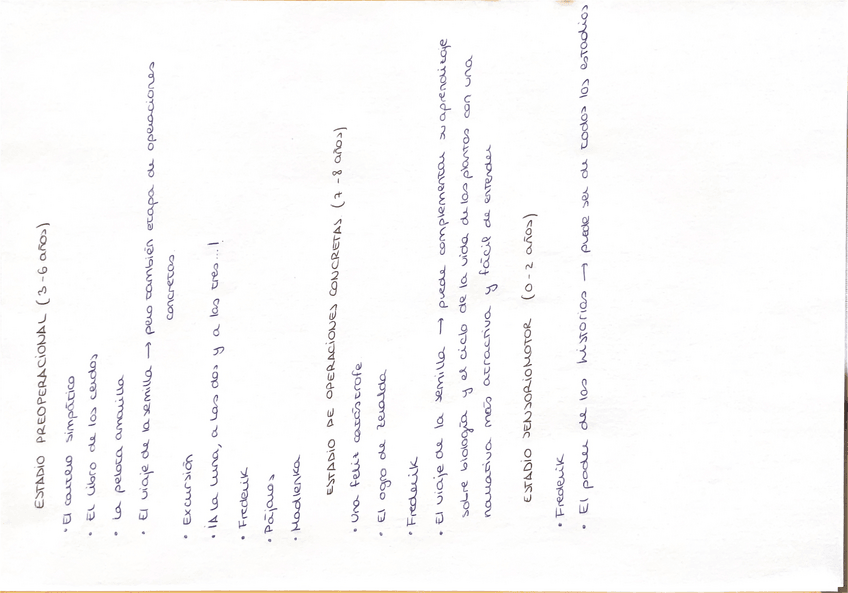 ESTADIO PREOPERACIONAL (3-6 años)
• El cartero simpático
• El libro de los cerdos
• La pelota amarilla
• El viaje de la semilla → pero también etapa de operaciones
concretas
• Excursión
• ¡A la luna, a las dos y a las tres...!
• Frederik
• Pájaros
• Madlenka
ESTADIO DE OPERACIONES CONCRETAS (7-8 años)
• Una feliz catástrofe
• El ogro de Zeralda
• Frederik
• El viaje de la semilla → puede complementar su aprendizaje
sobre biología y el ciclo de la vida de las plantas con una
narrativa más atractiva y fácil de entender
ESTADIO SENSORIOMOTOR (0-2 años)
• Frederik
• El poder de las historias → puede ser de todos los estadios